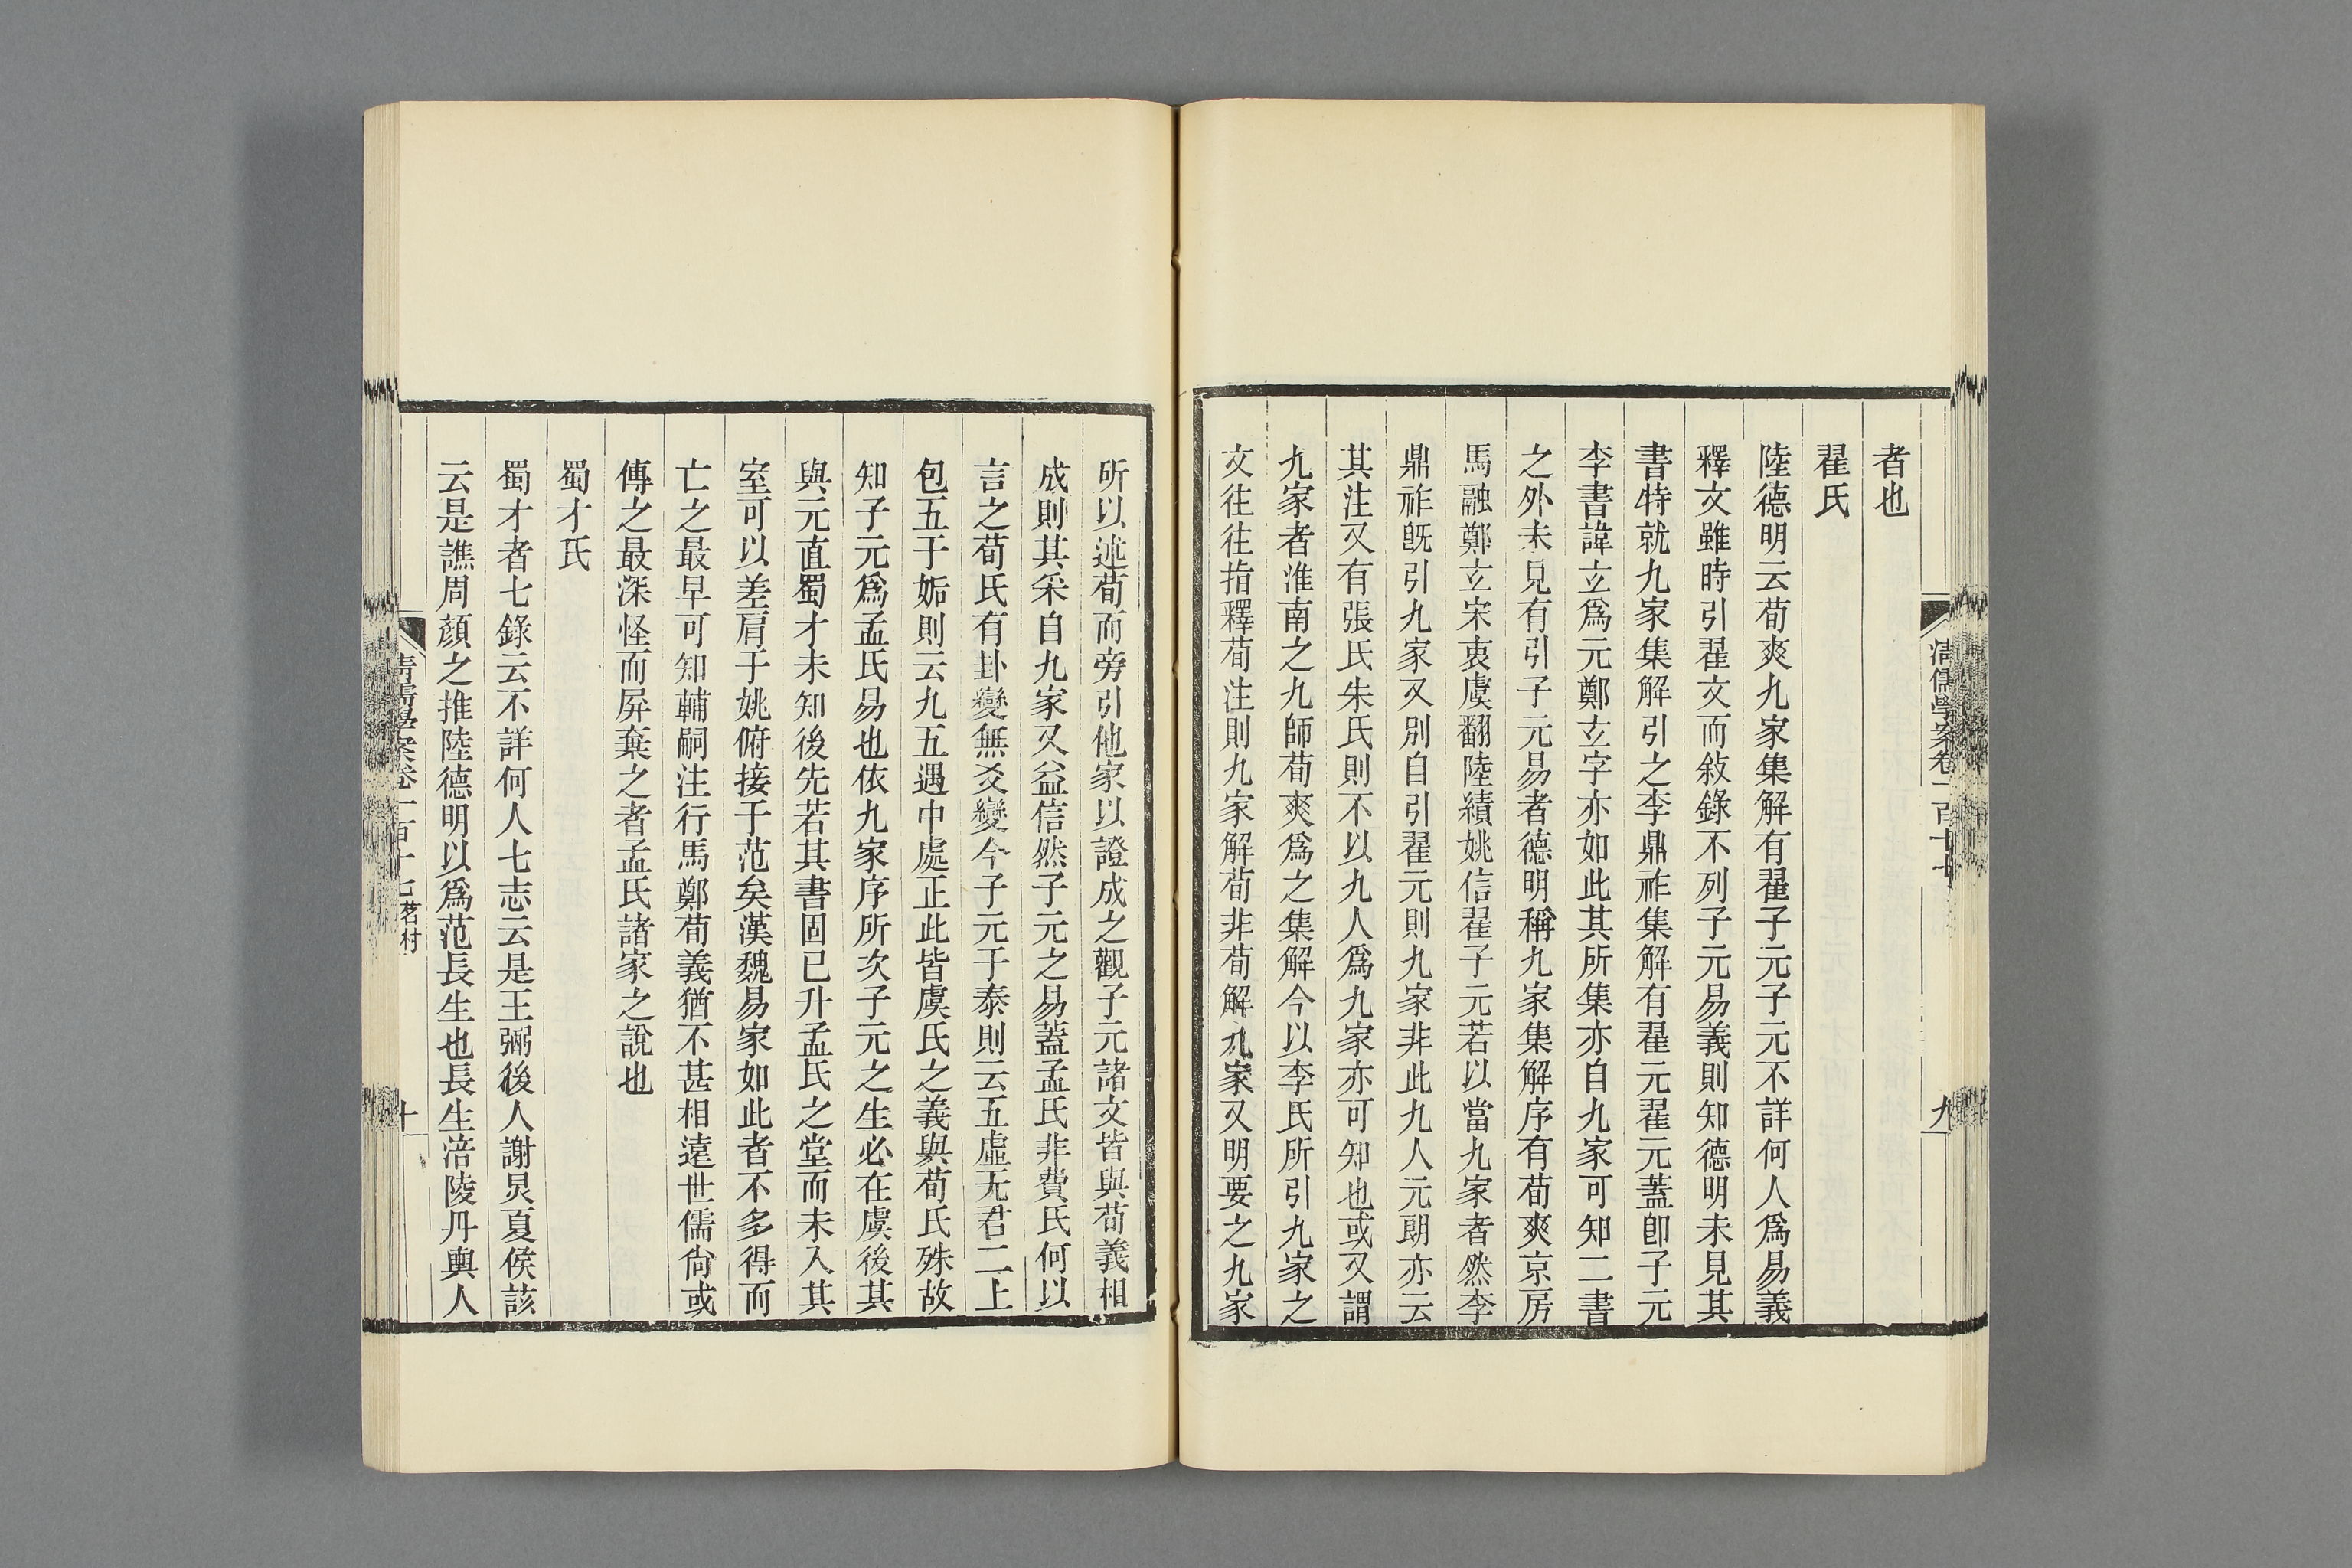 清儒學案卷一百十七
九
者也
翟氏
陸德明云荀爽九家集解有翟子元子元不詳何人爲易義
釋文雖時引翟文而敘錄不列子元易義則知德明未見其
書特就九家集解引之李鼎祚集解有翟元翟元蓋卽子元
李書諱玄爲元鄭玄字亦如此其所集亦自九家可知二書
之外未見有引子元易者德明稱九家集解序有荀爽京房
馬融鄭玄宋衷虞翻陸績姚信翟子元若以當九家者然李
鼎祚旣引九家又別自引翟元則九家非此九人元朗亦云
其注又有張氏朱氏則不以九人爲九家亦可知也或又謂
九家者淮南之九師荀爽爲之集解今以李氏所引九家之
文往往指釋荀注則九家解荀非荀解九家又明要之九家
所以述荀而旁引他家以證成之觀子元諸文皆與荀義相
成則其采自九家又益信然子元之易蓋孟氏非費氏何以
言之荀氏有卦變無爻變今子元于泰則云五虛无君二上
包五于姤則云九五遇中處正此皆虞氏之義與荀氏殊故
知子元爲孟氏易也依九家序所次子元之生必在虞後其
與元直蜀才未知後先若其書固已升孟氏之堂而未入其
室可以差肩于姚俯接于范矣漢魏易家如此者不多得而
亡之最早可知輔嗣注行馬鄭荀義猶不甚相遠世儒尙或
傳之最深怪而屛棄之者孟氏諸家之說也
蜀才氏
蜀才者七錄云不詳何人七志云是王弼後人謝炅夏侯該
云是譙周顏之推陸德明以爲范長生也長生涪陵丹輿人
清儒學案卷一百十七 茗村
十